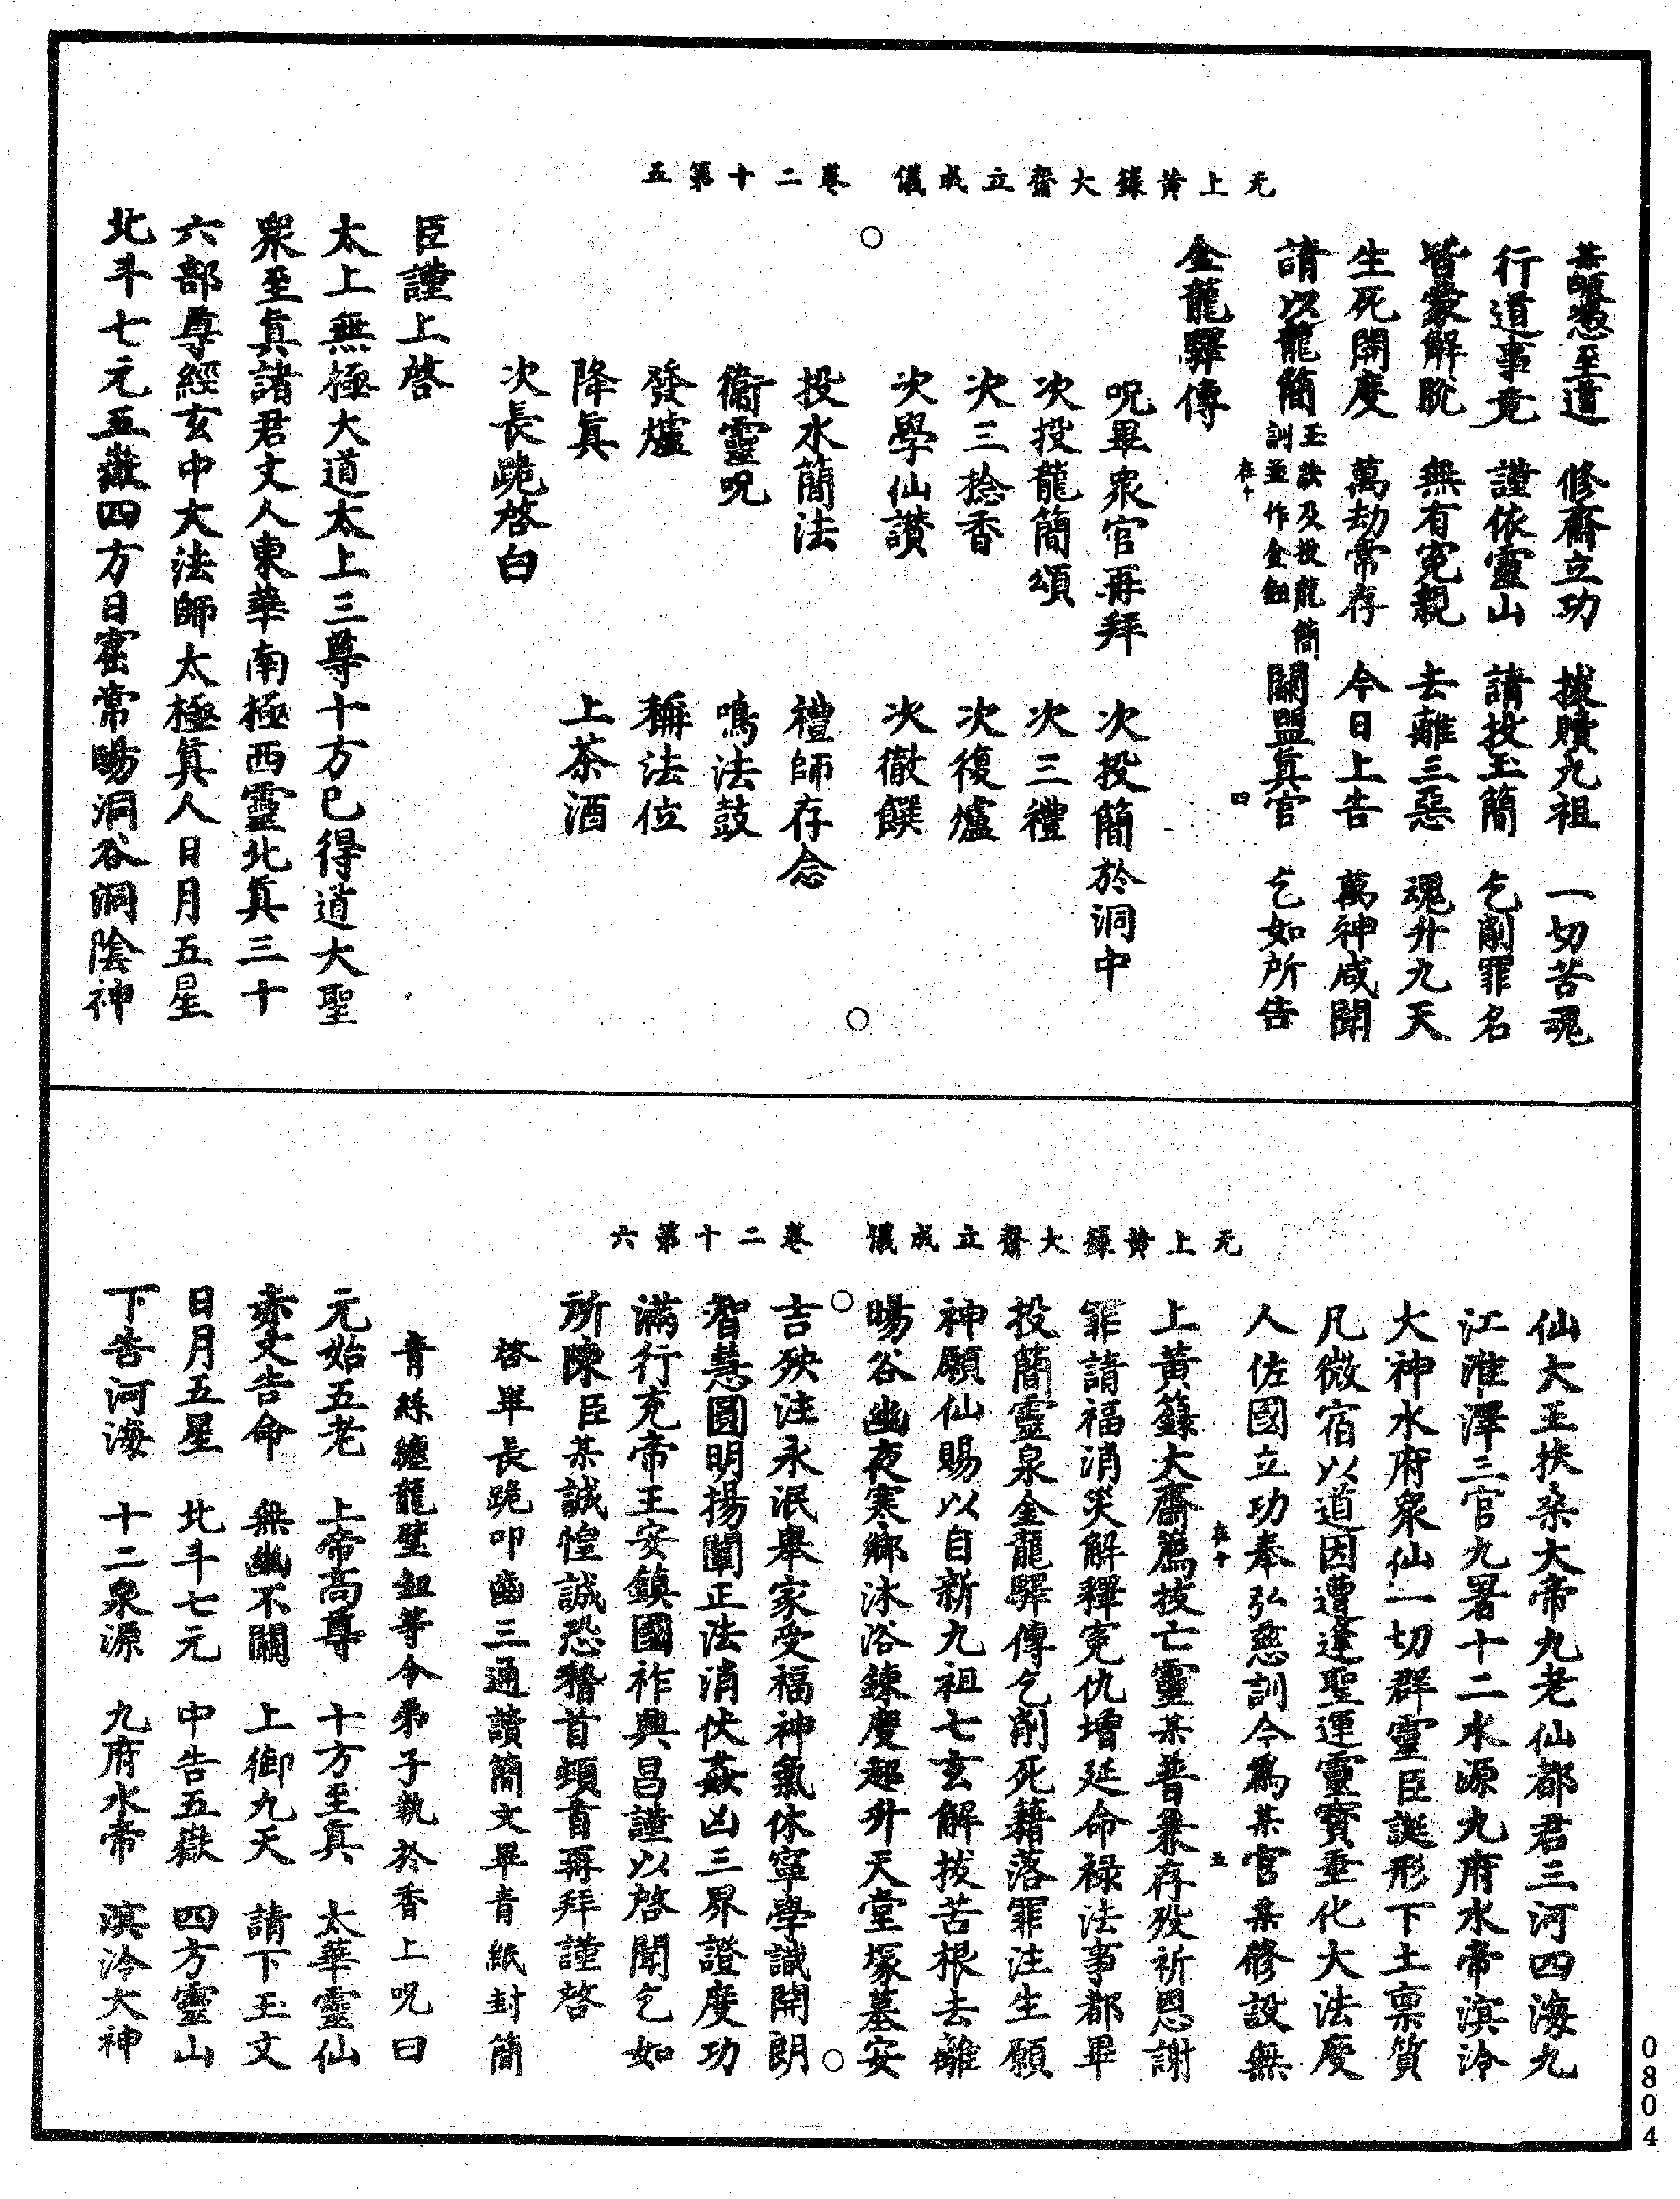 元上黄籙大齋立成儀　卷二十第五
某願憑至道　修齋立功　拔贖九祖　一切苦魂
行道事竟　謹依靈山　請投玉簡　乞削罪名
皆蒙解脫　無有寃親　去離三惡　魂升九天
生死開度　萬劫常存　今日上告　萬神咸聞
請以龍簡玉訣及投龍簡訓並作金鈕關盟真官　乞如所告
在十　四
金龍驛傳
呪畢衆官再拜　次投簡於洞中
次投龍簡頌　次三禮
次三捻香　次復爐
次學仙讃　次徹饌
投水簡法　禮師存念
衞靈呪　鳴法鼓
發爐　稱法位
降眞　上茶酒
次長跪啓白
臣謹上啓
太上無極大道太上三尊十方已得道大聖
衆至眞諸君丈人東華南極西靈北眞三十
六部尊經玄中大法師太極眞人日月五星
北斗七元五嶽四方日窟常暘洞谷洞陰神
元上黄籙大齋立成儀　卷二十第六
仙大王扶桑大帝九老仙都君三河四海九
江淮澤三官九署十二水源九府水帝溟泠
大神水府衆仙一切群靈臣誕形下土禀質
凡微宿以道因遭逢聖運靈寳垂化大法度
人佐國立功奉弘慈訓今爲某官某修設無
在十　五
上黄籙大齋爲拔亡靈某普兼存歿祈恩謝
罪請福消災解釋寃仇增延命禄法事都畢
投簡靈泉金龍驛傳乞削死藉落罪注生願
神願仙賜以自新九祖七玄解拔苦根去離
暘谷幽夜寒鄉沐浴鍊度超升天堂塚墓安
吉殃注永泯舉家受福神氣休寧學識開朗
智慧圓明揚闡正法消伏姦凶三界證度功
滿行充帝王安鎭國祚興昌謹以啓聞乞如
所陳臣某誠惶誠恐稽首頓首再拜謹啓
啓畢長跪叩齒三通讀簡文畢青紙封簡
青絲纏龍璧鈕等令弟子執於香上呪曰
元始五老　上帝高尊　十方至眞　太華靈仙
赤文告命　無幽不關　上御九天　請下玉文
日月五星　北斗七元　中告五嶽　四方靈山
下告河海　十二泉源　九府水帝　溟泠大神
0804